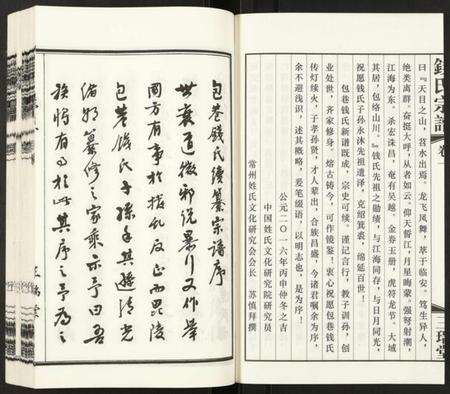 錢氏宗譜 卷一
三瑞堂
曰『天目之山，苕水出焉。龙飞凤舞，萃于临安。笃生异人，
绝类离群。奋挺大呼，从者如云。仰天誓江，月星晦蒙。强弩射潮，
江海为东。杀宏诛昌，奄有吴越。金券玉册，虎符龙节。大城
其居，包络山川。』钱氏先祖之勋绩，与江海同存，与日月同光，
祝愿钱氏子孙永沐先祖遗泽，克绍箕裘，绵延百世！
包巷钱氏新谱既成，宗史可续。谨记言行，教子训孙，创
业处世，齐家修身。熔古铸今，可作镜鉴。衷心祝愿包巷钱氏
传灯续火，子孝孙贤，才人辈出，合族昌盛，今诸君嘱余为序，
余不避浅识，述其概略，爰笔缀语，以明志也。是为序！
公元二〇一六年丙申仲冬之吉
中国姓氏文化研究院研究员
常州姓氏文化研究会会长 苏慎拜撰
包巷錢氏續纂宗譜序
世衰道微邪說暴行又作舉
國方有事於撥亂反正而毘陵
包巷錢氏子孫手其清光
緒朝纂修之家乘示予曰吾
族將有於此其序之予為之
三瑞堂